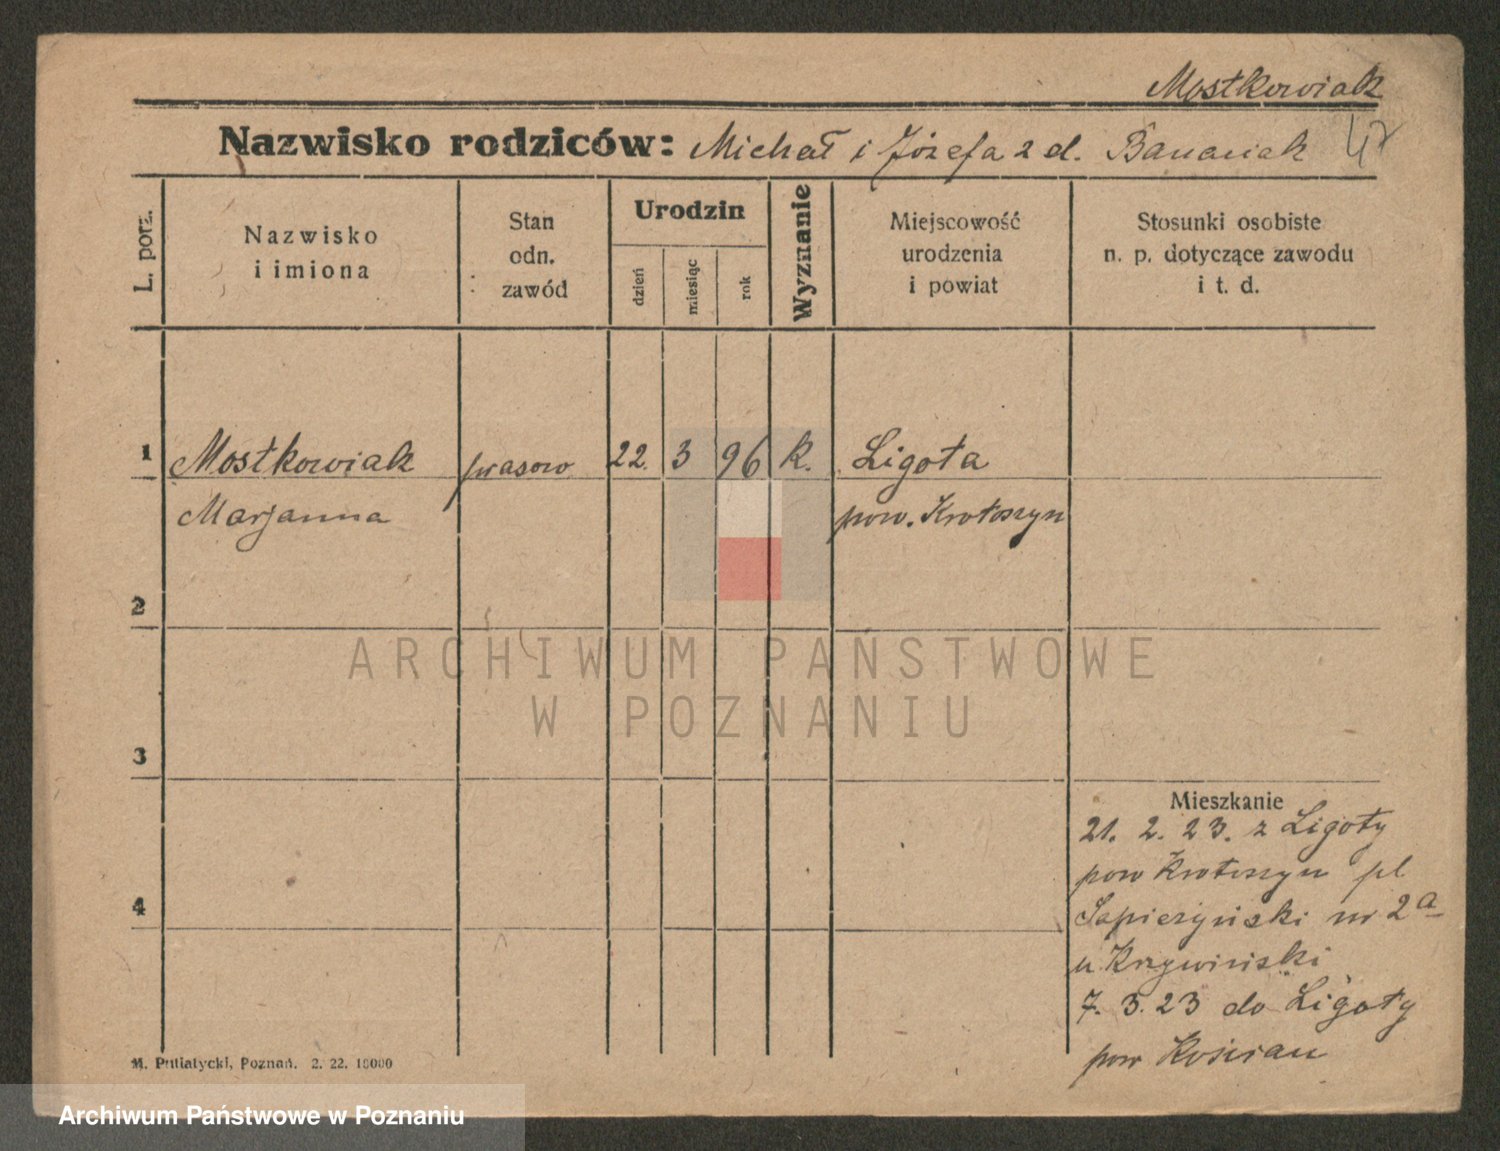 Mostkowiak
Nazwisko rodziców: Michał i Józefa z d. Banasiak 47
L. porz.
Nazwisko
i imiona
Stan
odn.
zawód
Urodzin
dzień
miesiąc
rok
Wyznanie
Miejscowość
urodzenia
i powiat
Stosunki osobiste
n. p. dotyczące zawodu
i t. d.
1 Mostkowiak prasow 22. 3 96 k. Ligota
Marjanna pow. Krotoszyn
2
ARCHIWUM PAŃSTWOWE
W POZNANIU
3
Mieszkanie
21. 2. 23. z Ligoty
pow Krotoszyn pl
4
Sapieżyński nr 2a
u Krzywiński
7. 3. 23 do Ligoty
pow Kościan
M. Putiatycki, Poznań. 2. 22. 10000
Archiwum Państwowe w Poznaniu